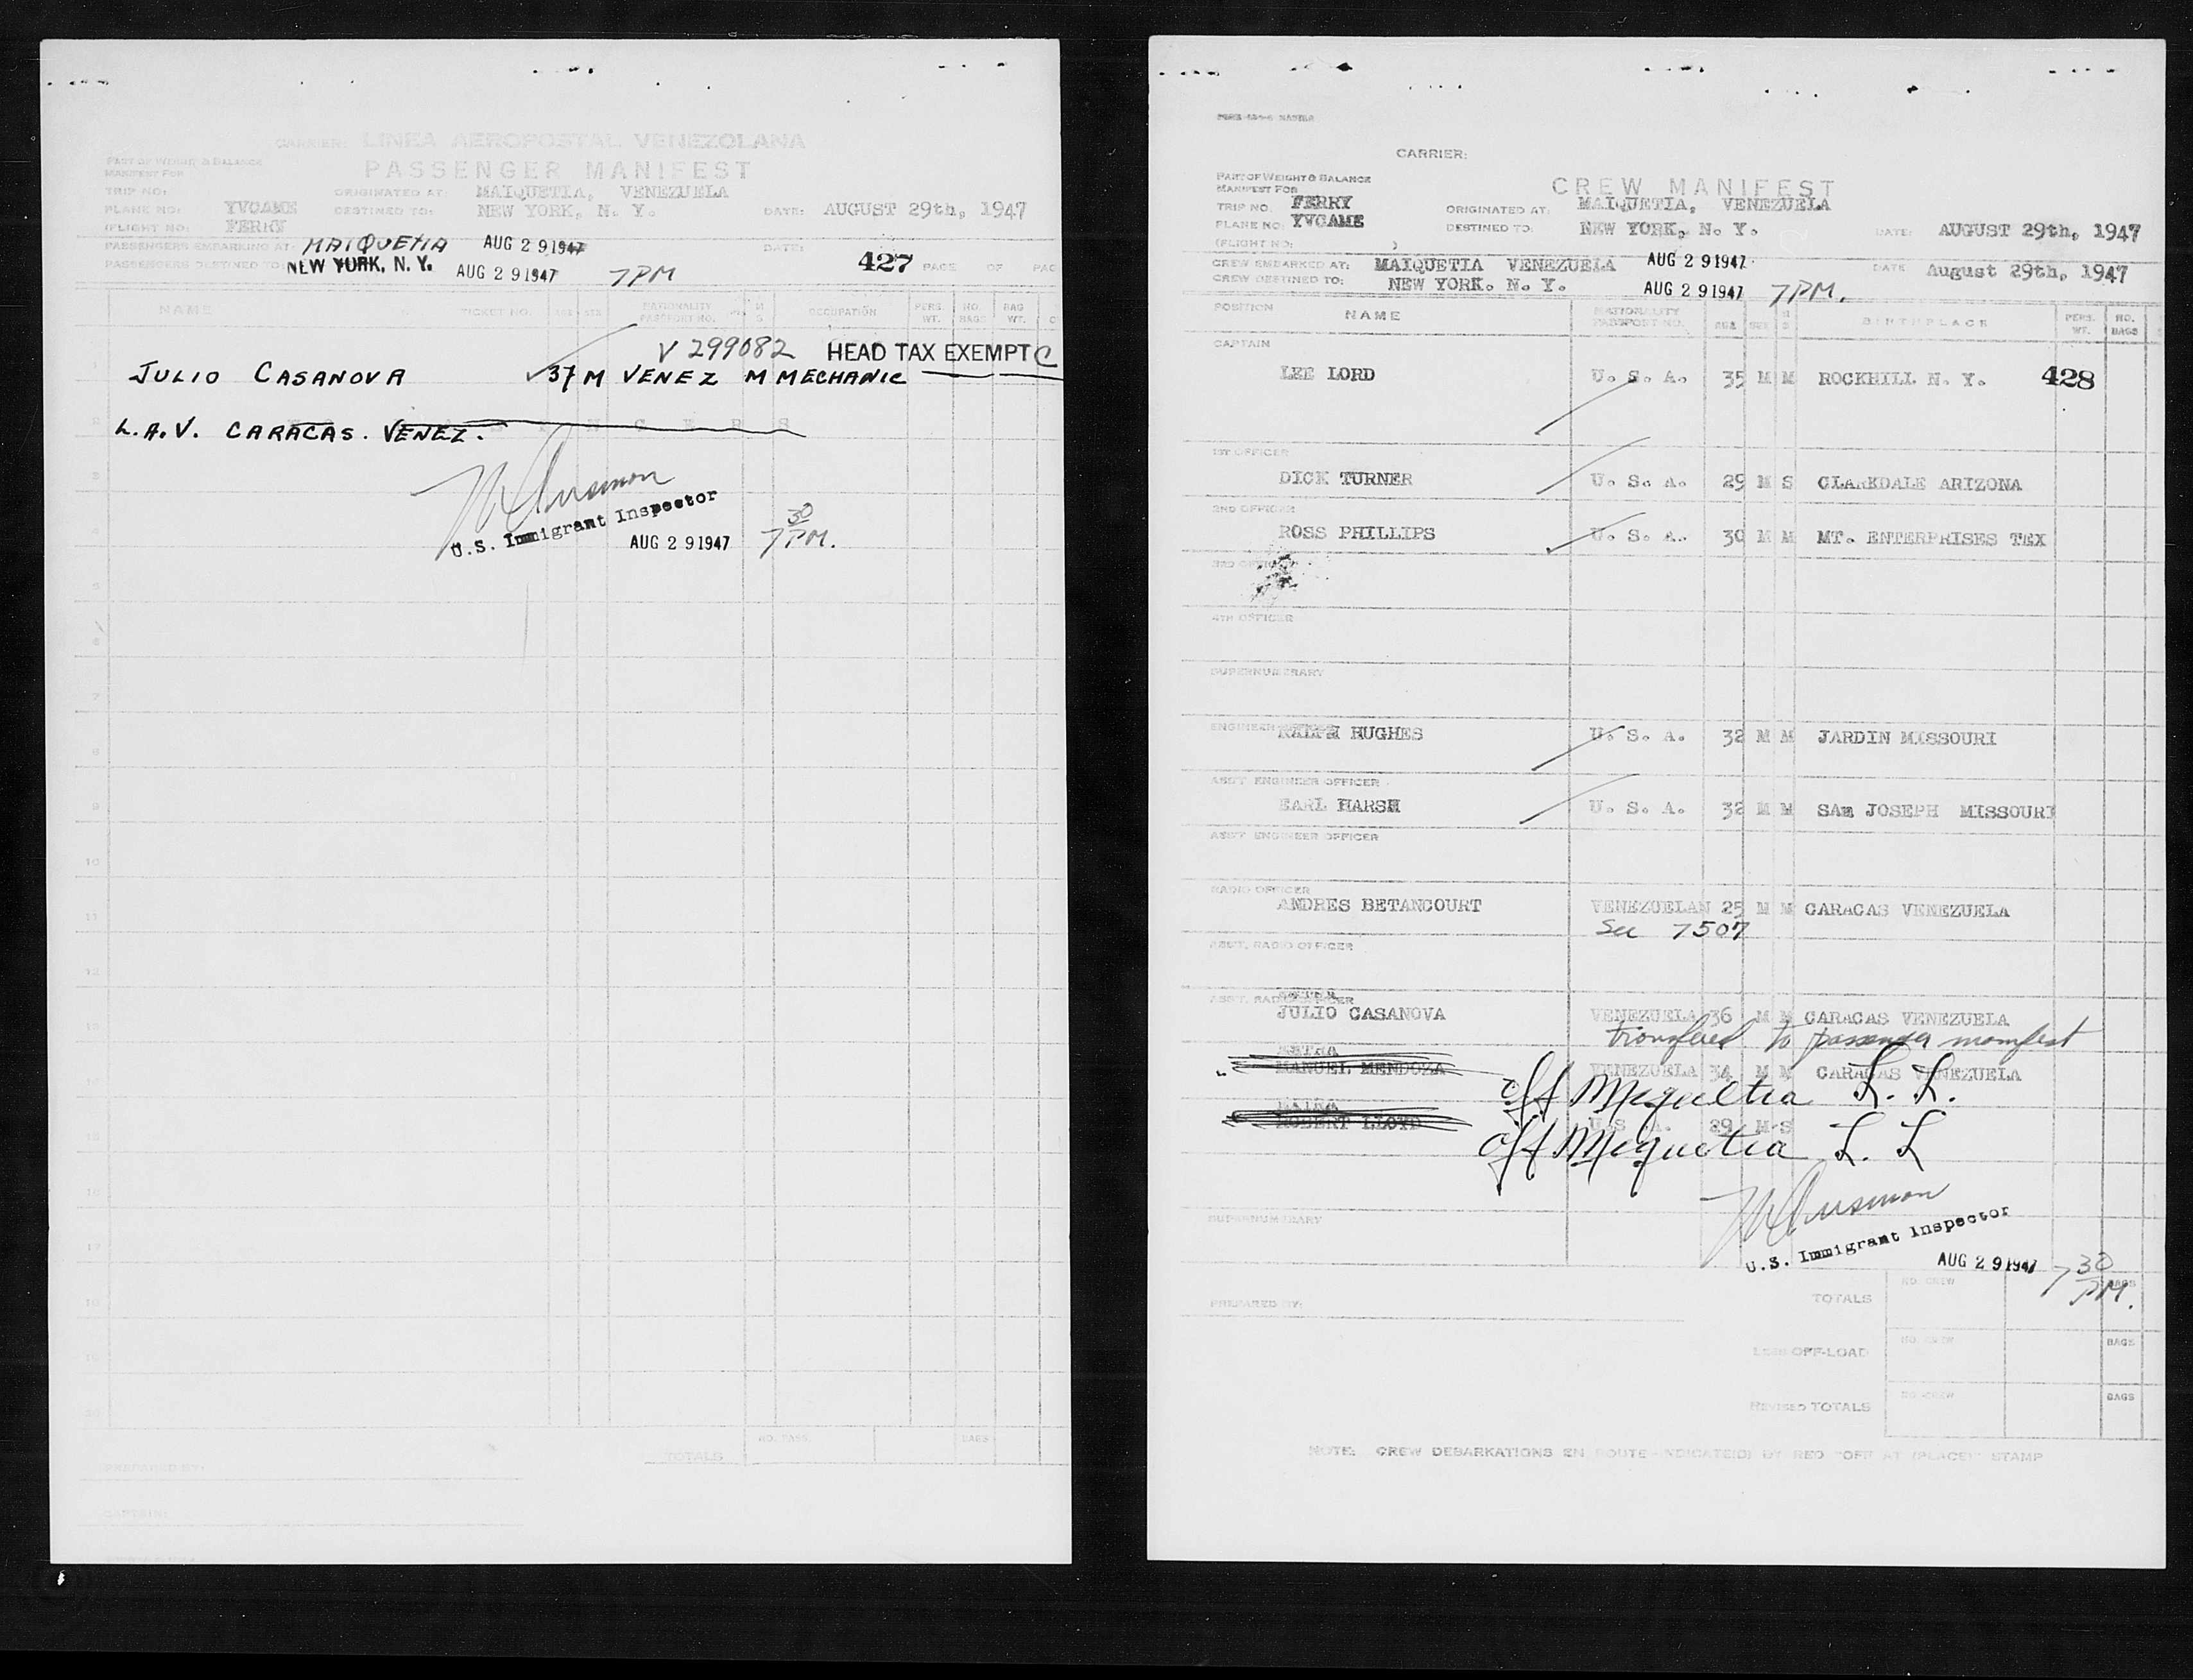 CARRIER: LINEA AEROPOSTAL VENEZOLANA
PART OF WEIGHT & BALANCE
MANIFEST FOR
PASSENGER MANIFEST
TRIP NO:
ORIGINATED AT: MAIQUETIA, VENEZUELA
PLANE NO: YVCAME DESTINED TO: NEW YORK, N. Y. DATE: AUGUST 29th, 1947
(FLIGHT NO: FERRY
PASSENGERS EMBARKING AT: MAIQUETIA AUG 29 1947 DATE:
PASSENGERS DESTINED TO: NEW YORK, N. Y. AUG 29 1947 7PM 427 PAGE OF PAG
NAME TICKET NO. AGE SEX NATIONALITY PASSPORT NO. M S OCCUPATION PERS. WT. NO. BAGS BAG WT.
V 299082 HEAD TAX EXEMPT C
1 JULIO CASANOVA 37 M VENEZ M MECHANIC
2 L.A.V. CARACAS. VENEZ.
3
U.S. Immigrant Inspector
4 AUG 29 1947 7 30 PM.
5
6
7
8
9
10
11
12
13
14
15
16
17
18
19
20
TOTALS NO. PASS. BAGS
PREPARED BY:
CAPTAIN:
CARRIER:
PART OF WEIGHT & BALANCE
MANIFEST FOR
CREW MANIFEST
TRIP NO. FERRY ORIGINATED AT: MAIQUETIA, VENEZUELA
PLANE NO: YVCAME DESTINED TO: NEW YORK, N. Y. DATE: AUGUST 29th, 1947
(FLIGHT NO: )
CREW EMBARKED AT: MAIQUETIA VENEZUELA AUG 29 1947 DATE August 29th, 1947
CREW DESTINED TO: NEW YORK. N. Y. AUG 29 1947 7PM.
POSITION NAME NATIONALITY PASSPORT NO. AGE SEX M S BIRTHPLACE PERS. WT. NO. BAGS
CAPTAIN
LEE LORD U. S. A. 35 M M ROCKHILL N. Y. 428
1ST OFFICER
DICK TURNER U. S. A. 29 M S CLARKDALE ARIZONA
2ND OFFICER
ROSS PHILLIPS U. S. A. 30 M M MT. ENTERPRISES TEX
3RD OFFICER
4TH OFFICER
SUPERNUMERARY
ENGINEER
RALPH HUGHES U. S. A. 32 M M JARDIN MISSOURI
ASS'T ENGINEER OFFICER
EARL HARSH U. S. A. 32 M M SAm JOSEPH MISSOURI
ASS'T ENGINEER OFFICER
RADIO OFFICER
ANDRES BETANCOURT VENEZUELAN 25 M M CARACAS VENEZUELA
See 7507
ASS'T. RADIO OFFICER
ASS'T. RADIO OFFICER
JULIO CASANOVA VENEZUELA 36 M M CARACAS VENEZUELA
transfered to passenger manifest
EXTRA
MANUEL MENDOZA VENEZUELA 34 M M CARACAS VENEZUELA
off Mequeltia L. L.
EXTRA
ROBERT LLOYD U.S. A. 29 M S
off Mequetia L. L
SUPERNUMERARY
U.S. Immigrant Inspector
AUG 29 1947 7 30 PM.
PREPARED BY: TOTALS NO. CREW BAGS
LESS OFF-LOAD NO. CREW BAGS
REVISED TOTALS NO. CREW BAGS
NOTE: CREW DEBARKATIONS EN ROUTE INDICATE(D) BY RED "OFF AT (PLACE)" STAMP